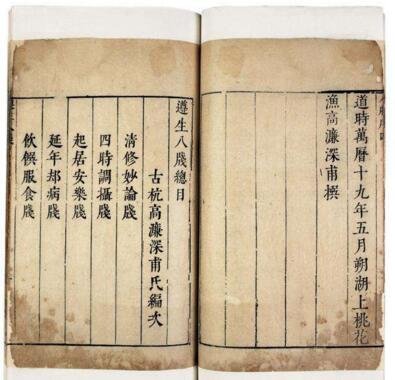 道時萬曆十九年五月朔湖上桃花
漁高濂深甫撰
遵生八牋總目
古杭高濂深甫氏編次
清修妙論牋
四時調攝牋
起居安樂牋
延年却病牋
飲饌服食牋